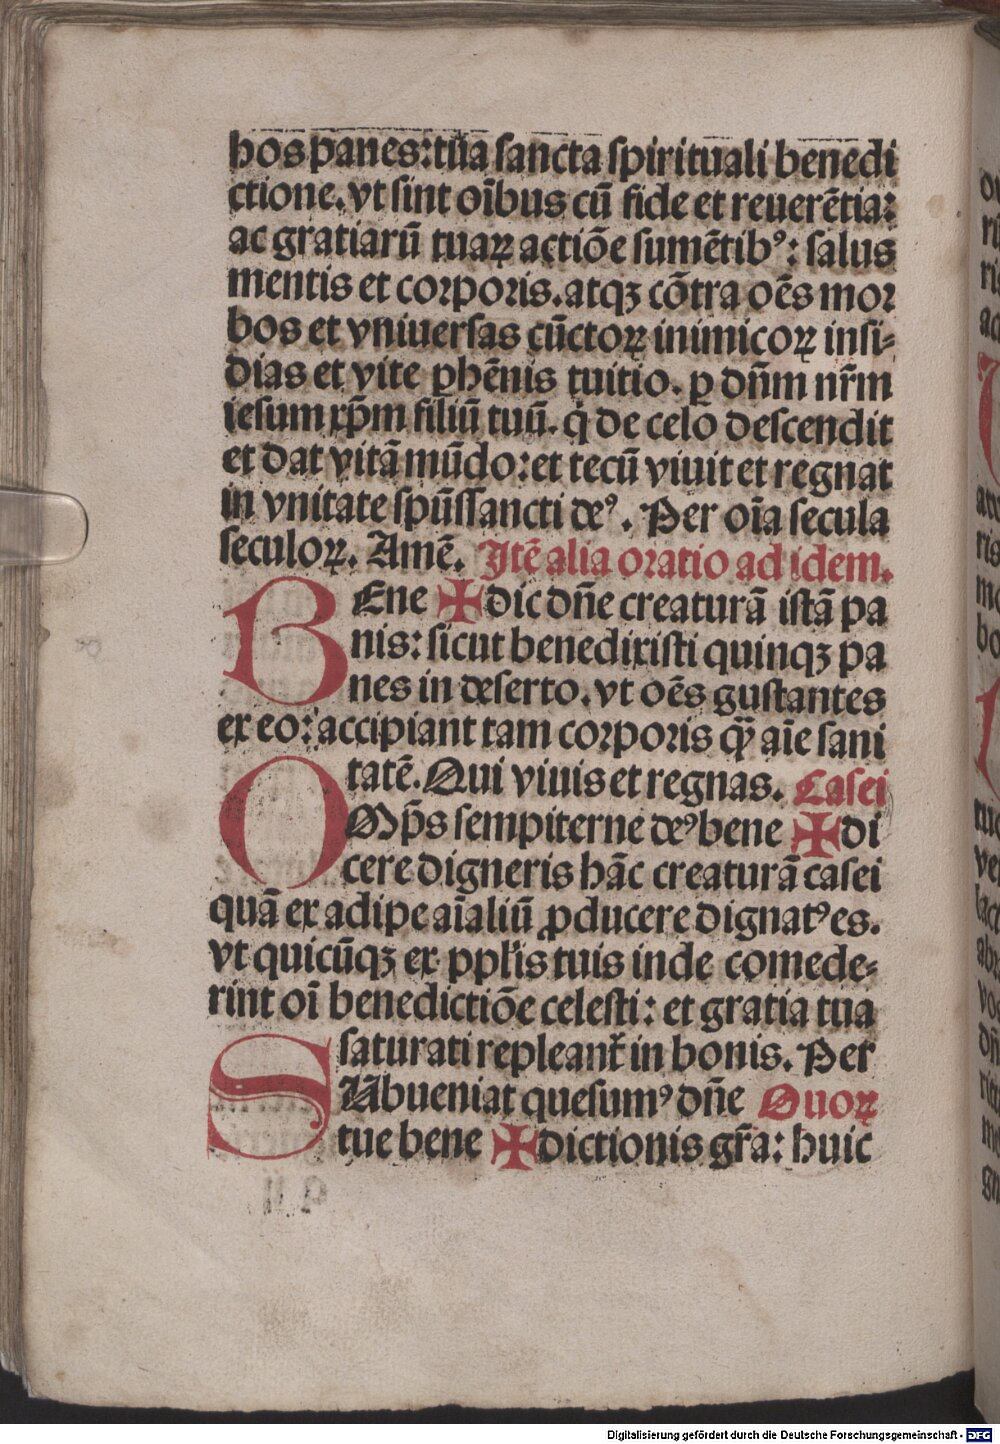 hos panes: tua sancta spirituali benedi
ctione. vt sint oı̄bus cū fide et reuerētia:
ac gratiarū tuaꝝ actiōe sumētibꝰ: salus
mentis et corporis. atqꝫ cōtra oēs mor
bos et vniuersas cūctoꝝ inimicoꝝ insi-
dias et vite ꝑhēnis tuitio. ꝑ dn̄m nr̄m
iesum xp̄m filiū tuū. q̇ de celo descendit
et dat vitā mūdo: et tecū viuit et regnat
in vnitate spūssancti deꝰ. Per oı̄a secula
seculoꝝ. Amē. Itē alia oratio ad idem.
BEne ✠ dic dn̄e creaturā istā pa
nis: sicut benedixisti quinqꝫ pa
nes in deserto. vt oēs gustantes
ex eo: accipiant tam corporis qꝫ̄ aı̄e sani
tatē. Qui viuis et regnas. Casei
OMp̄s sempiterne deꝰ bene ✠ di
cere digneris hāc creaturā casei
quā ex adipe aı̄aliū ꝓducere dignatꝰ es.
vt quicūqꝫ ex ppl̄is tuis inde comede-
rint oı̄ benedictiōe celesti: et gratia tua
saturati repleant᷑ in bonis. Per
SUbueniat quesumꝰ dn̄e Ouoꝝ
tue bene ✠ dictionis gr̄a: huic
Digitalisierung gefördert durch die Deutsche Forschungsgemeinschaft - DFG